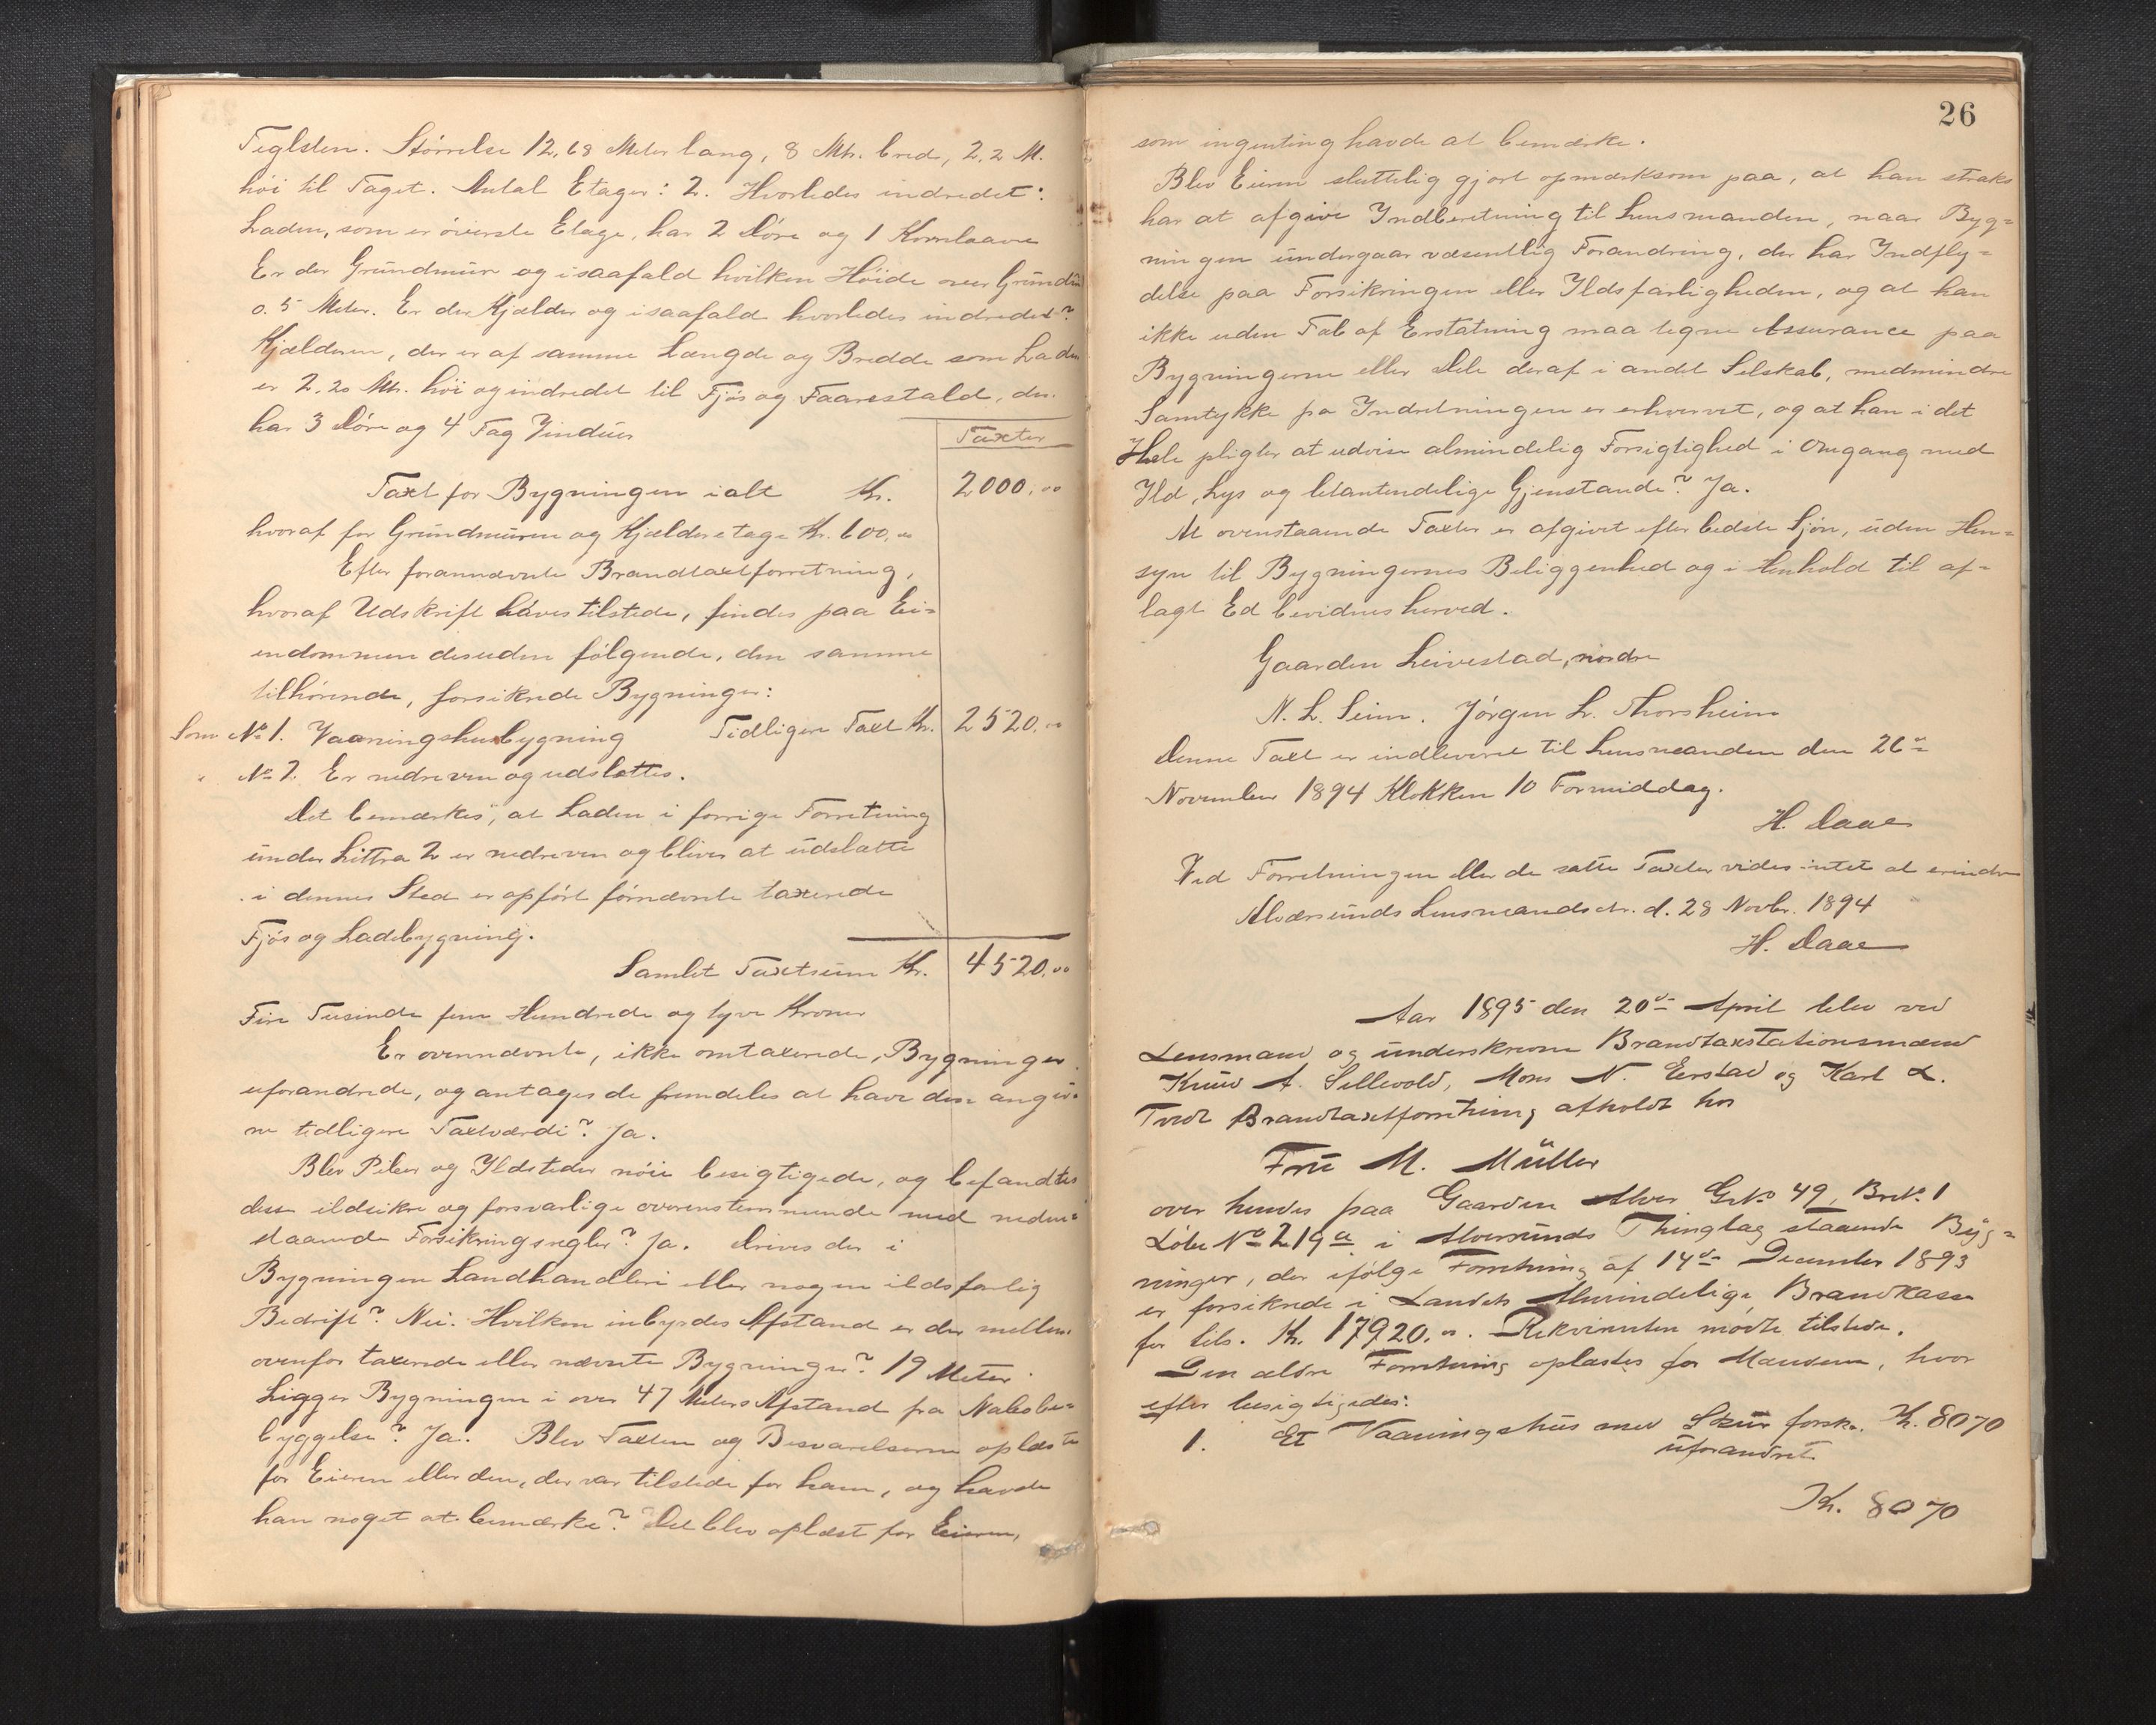 Teglsten. Størrelse 12,68 Meter lang, 8 Mtr. bred, 2,2 M.
høi til Taget. Antal Etager: 2. Hvorledes indredet:
Laden, som er øverste Etage, har 2 Døre og 1 Kornlaave
Er der Grundmur og isaafald hvilken Høide over Grunden
0.5 Meter. Er der Kjælder og isaafald hvorledes indredet?
Kjælderen, der er af samme Længde og Bredde som Laden
er 2,20 Mtr. høi og indredet til Fjøs og Faarestald, der
har 3 Døre og 4 Fag Vinduer
Taxter
Taxt for Bygningen ialt Kr. 2000,00
hvoraf for Grundmuren og Kjælderetage Kr. 600,00
Efter forannævnte Brandtaxtforretning,
hvoraf Udskrift haves tilstede, findes paa Ei=
endommen desuden følgende, den samme
tilhørende, forsikrede Bygninger:
Som No 1. Vaaningshusbygning Tidligere Taxt Kr. 2520,00
" No 2. Er nedreven og udslettes.
Det bemærkes, at Laden i forrige Forretning
under Littra 2 er nedreven og bliver at udslette
i dennes Sted er opført førnævnte taxerede
Fjøs og Ladebygning.
Samlet Taxtsum Kr. 4520,00
Fire Tusinde fem Hundrede og tyve Kroner
Er ovennævnte, ikke omtaxerede, Bygninger
uforandrede, og antages de fremdeles at have den angiv=
ne tidligere Taxtværdi? Ja.
Blev Piber og Ildsteder nøie besigtigede, og befandtes
disse ildsikre og forsvarlige overensstemmende med neden=
staaende Forsikringsregler? Ja. Drives der i
Bygningen Landhandleri eller nogen ildsfarlig
Bedrift? Nei. Hvilken inbyrdes Afstand er der mellem
ovenfor taxerede eller nævnte Bygninger? 19 Meter.
Ligger Bygningen i over 47 Meters Afstand fra Nabobe=
byggelse? Ja. Blev Taxten og Besvarelserne oplæste
for Eieren eller den, der var tilstede for ham, og havde
han noget at bemærke? Det blev oplæst for Eieren,
26
som ingenting havde at bemærke.
Blev Eieren sluttelig gjort opmærksom paa, at han straks
har at afgive Indberetning til Lensmanden, naar Byg=
ningen undergaar væsentlig Forandring, der har Indfly=
delse paa Forsikringen eller Ildsfarligheden, og at han
ikke uden Tab af Erstatning maa tegne Assurance paa
Bygningerne eller Dele deraf i andet Selskab, medmindre
Samtykke fra Indretningen er erhvervet, og at han i det
Hele pligter at udvise almindelig Forsigtighed i Omgang med
Ild, Lys og letantendelige Gjenstande? Ja.
At ovenstaaende Taxter er afgivet efter bedste Sjøn, uden Hen=
syn til Bygningernes Beliggenhed og i Henhold til af=
lagt Ed bevidnes herved.
Gaarden Leivestad, nordre
N. L. Seim. Jørgen L. Thorsheim
Denne Taxt er indleveret til Lensmanden den 26de
November 1894 Klokken 10 Formiddag.
H. Daae
Ved Forretningen eller de satte Taxter vides intet at erindre
Alversunds Lensmandsdr. d. 28 Novbr. 1894
H. Daae
Aar 1895 den 20de April blev ved
Lensmand og underskrevne Brandtaxtationsmænd
Knud A. Sellevold, Mons N. Eerstad og Karl L.
Tvedt Brandtaxtforretning afholdt hos
Fru M. Müller
over hendes paa Gaarden Alver Grt.No 49, Brt.No. 1
Løbe No 219a i Alversunds Thinglag staaende Byg=
ninger, der ifølge Forretning af 14de December 1893
er forsikrede i Landets Almindelige Brandkasse
for tils. Kr. 17920.00. Rekvirenten mødte tilstede.
Den ældre Forretning oplæstes for Mændene, hvor
efter besigtigedes:
1. Et Vaaningshus med Skur forsk. Kr. 8070
uforandret
Kr. 8070